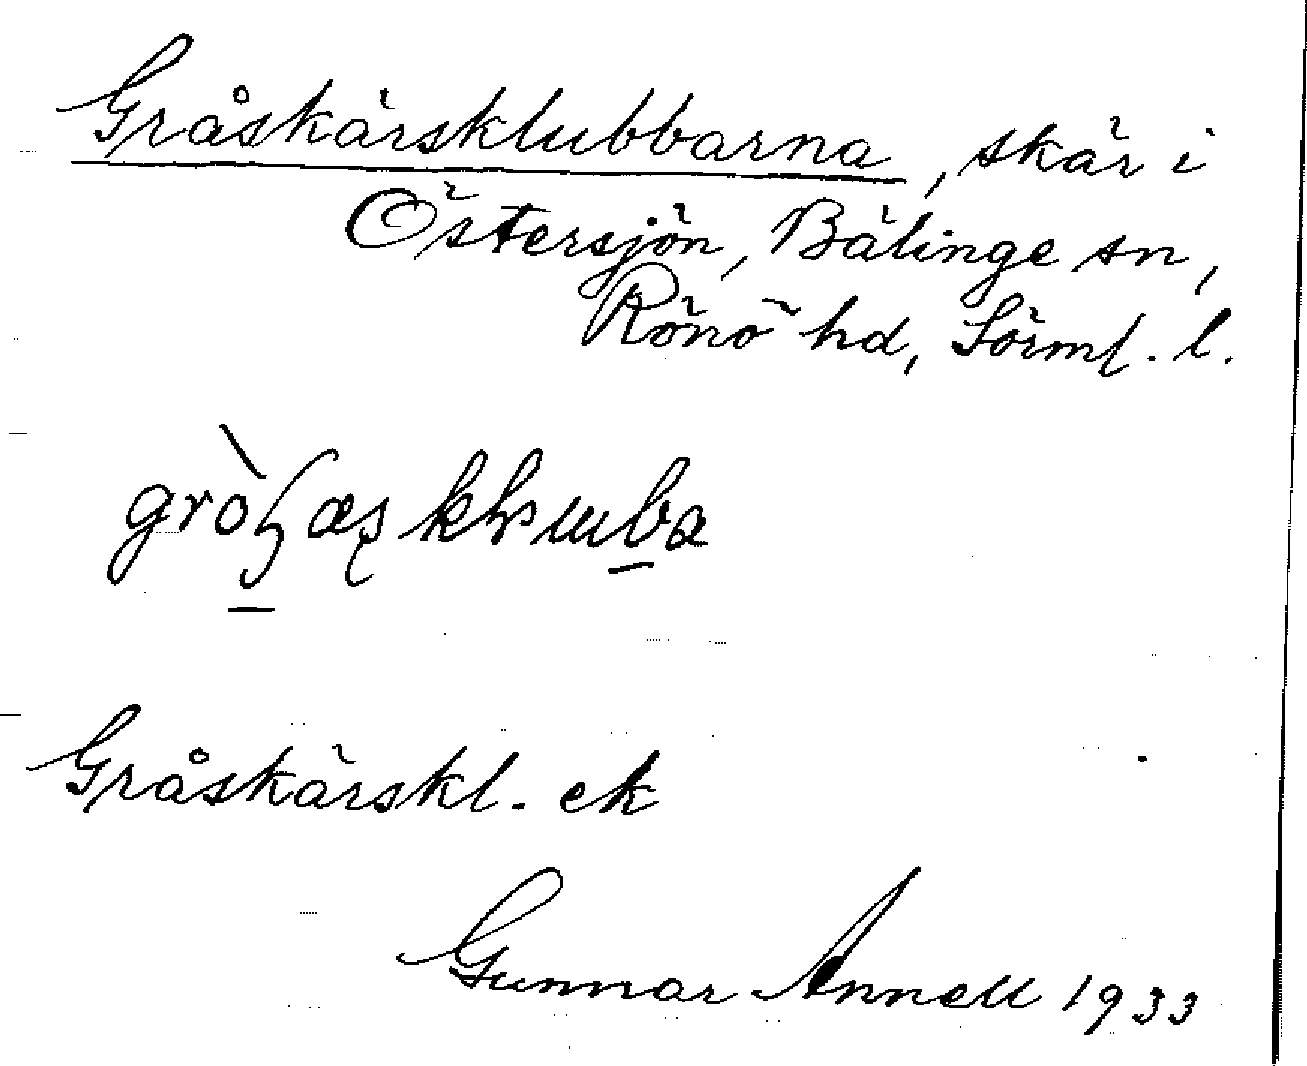 Gråskärsklubbarna, skär i
Östersjön, Bälinge sn,
Rönö hd, Sörml. l.
Gråskärskl. ek
Gunnar Annell 1933